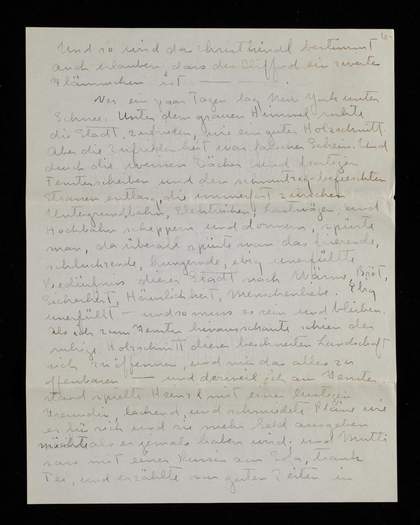 Und so wird das Christkindl bestimmt
auch erlauben, dass der Clifford ein zweites
Flämmchen ist — — — .
Vor ein paar Tagen lag New York unter
Schnee. Unter dem grauen Himmel ruhte
die Stadt, zufrieden, wie ein guter Holzschnitt.
Aber die Zufriedenheit war falscher Schein. Und
durch die weissen Dächer und
Fensterscheiben und den
Strassen entlang, die immerfort zwischen
Untergrundbahn, Elektrischen, und
Hochbahn scheppern und donnern, spürte
man, da überall spürte man das frierende,
schluchzende, hungernde, ewig unerfüllte
Bedürfnis dieser Stadt nach Wärme, Brot,
Sicherheit, Häuslichkeit, Menschenliebe. Ewig
unerfüllt — und so muss es sein und bleiben.
Als ich zum Fenster hinausschaute schien der
ruhige Holzschnitt dieser beschneiten Landschaft
sich zu öffnen, und mir das alles zu
offenbaren — und derweil ich am Fenster
stand spielte Hansi mit einer lustigen
Freundin, lachend, und schmiedete Pläne wie
es für sich und sie mehr Geld ausgeben
möchte als er jemals haben wird. und Mutti
sass mit einer am Sofa, trank
Tee, und erzählte von guten Zeiten in